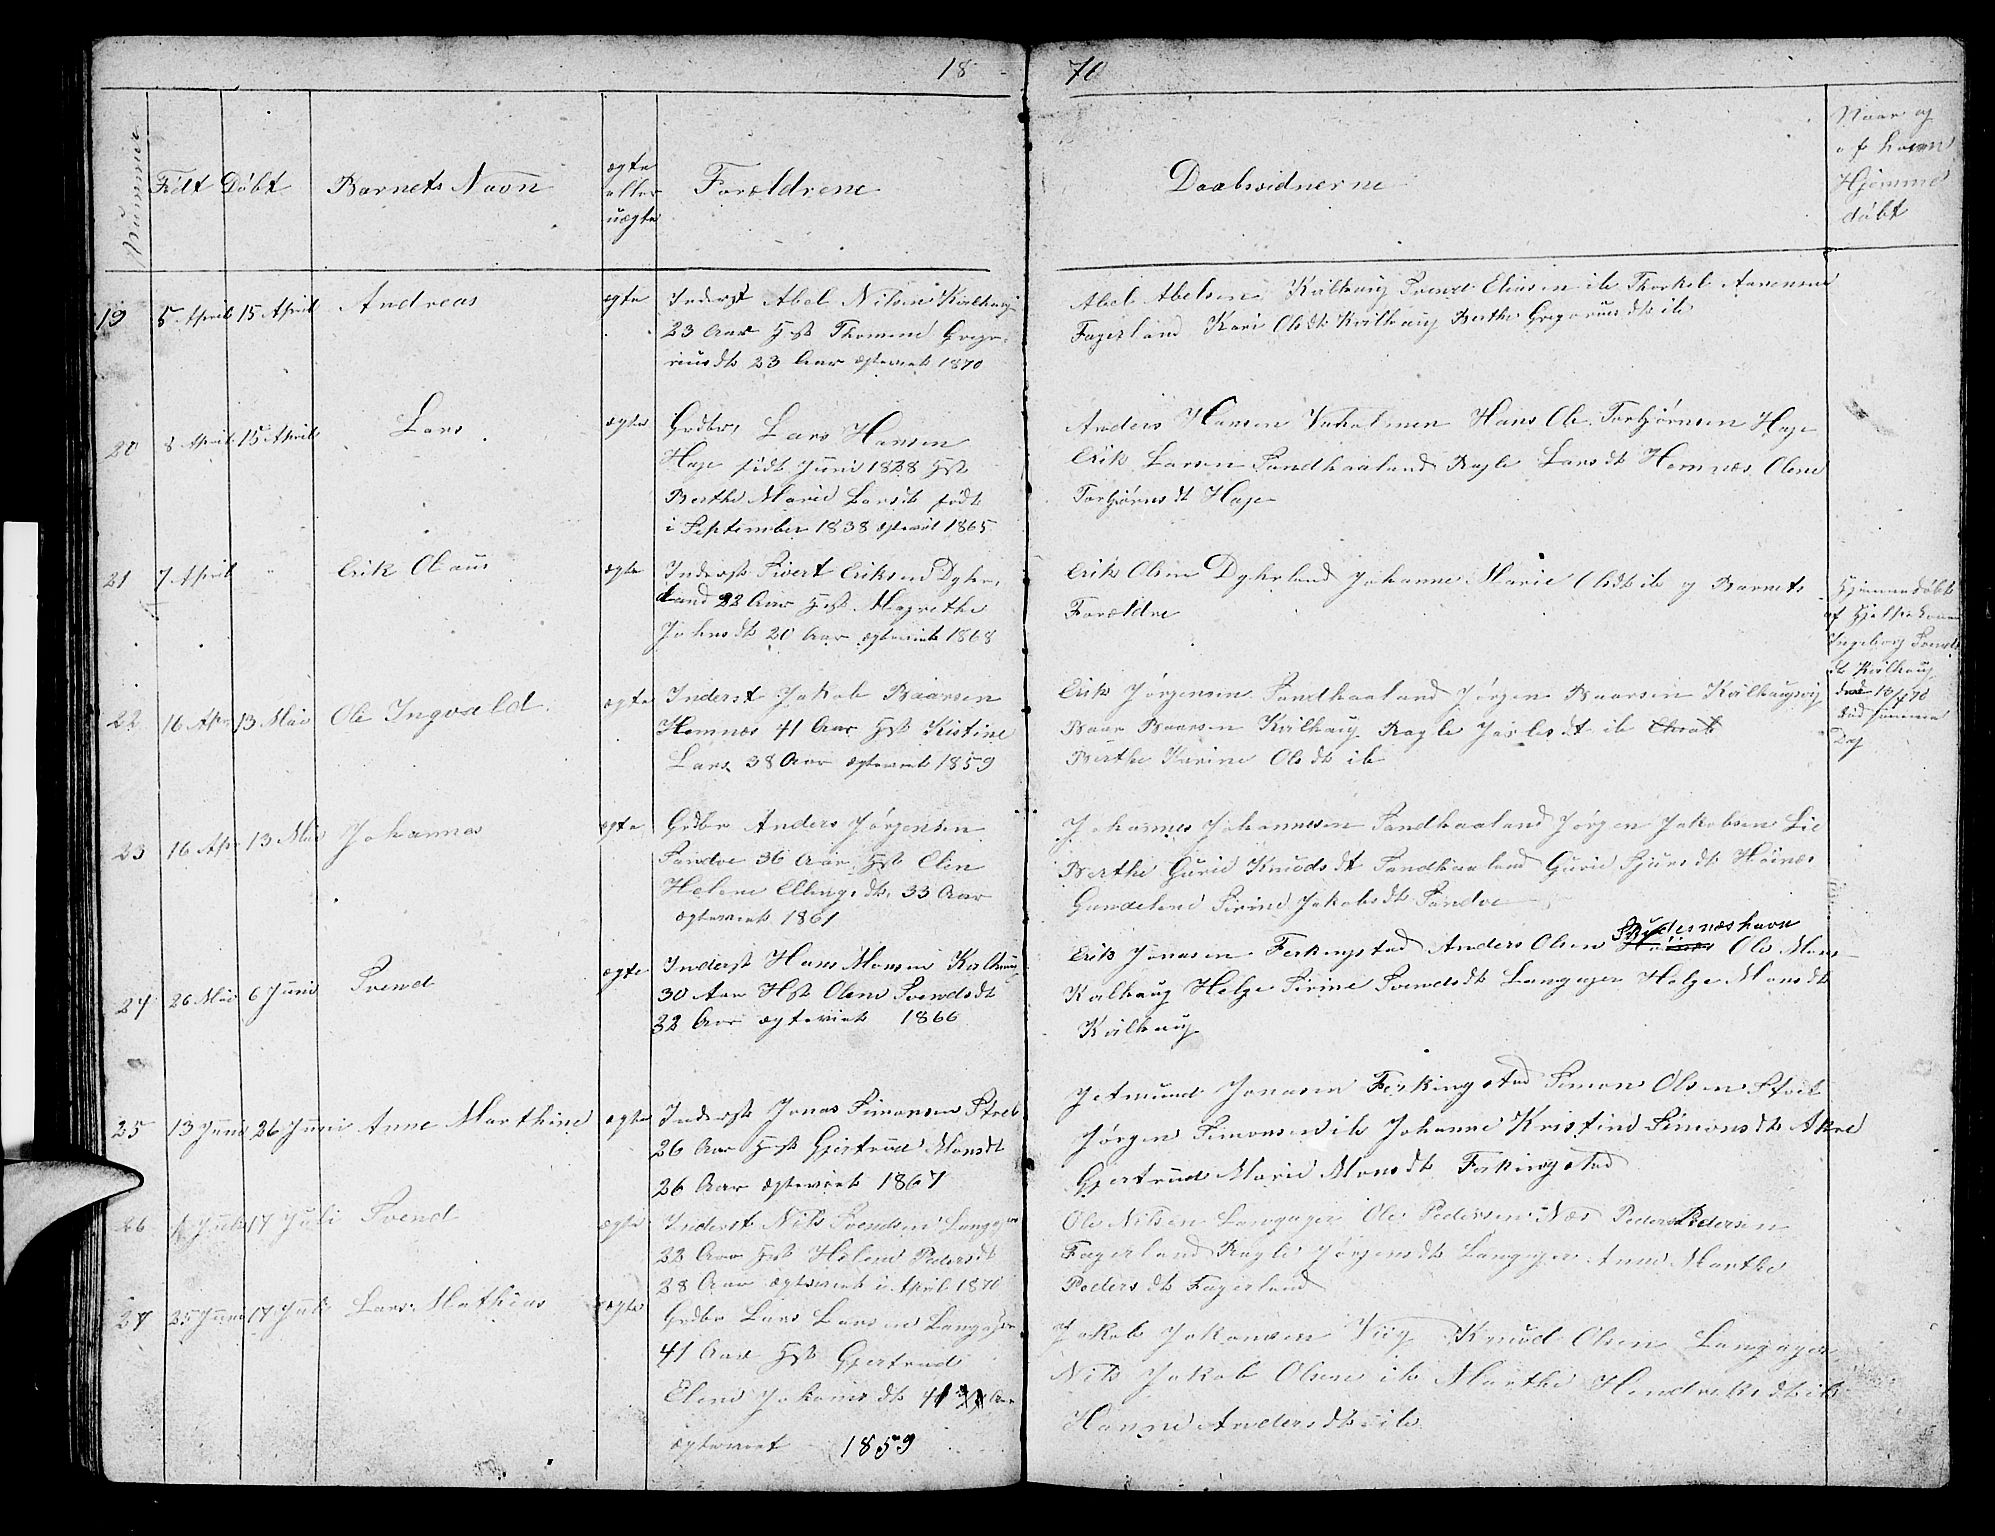 1870
Nummer
Född Döbt
Barnets Navn
ægte
eller
uægte
Forældrene
Daabsvidnerne
Naar og
af hvem
Hjemme
döbt
19 5 April 15 April Andreas ægte
Inderst Abel Nilsen Kvilhaug
23 Aar Hst Thomine Grego-
riusdt 23 Aar ægteviet 1870
Abel Abelsen Kvilhaug Svend Eliasen ib Thorkel Aanensen
Fagerland Kari Olsdt Kvilhaug Berthe Gregoriusdt ib
20 8 April 15 April Lars ægte
Grdbr, Lars Hansen
Hage födt Juni 1828 Hst
Berthe Marie Larsdt födt
i September 1838 ægteviet 1865
Anders Hansen Hans Ole Torbjörnsen Hage
Erik Larsen Sandhaaland Ragle Larsdt Hemnæs Olene
Torbjörnsdt Hage
21 7 April " Erik Olaus ægte
Inderst Sivert Eriksen Dyhr,
land 22 Aar Hst. Magrethe
Johnsdt 20 Aar ægteviet 1868
Erik Olsen Dyhrland Johanne Marie Olsdt ib og Barnets
Forældre
Hjemmedöbt
af Hjelpekonen
Ingeborg Svends
dt Kvilhaug
den 10/4 70
död samme
Dag
22 16 Apr 13 Mai Ole Ingvald. ægte
Inderst Jakob Baarsen
Hemnæs 41 Aar Hst Kistine
Lars 38 Aar ægteviet 1859
Erik Jörgensen Sandhaaland Jörgen Baarsen Kvilhaugsvig
Baar Baarsen Kvilhaug Ragle dt ib
Berthe Karine Olsdt ib
23 16 Apr 13 Mai Johannes ægte
Grdbr Anders Jörgensen
Sandve 36 Aar, Hst Olen
Helene Ellingsdt. 33 Aar
ægteviet 1861
Johannes Johannesen Sandhaaland Jörgen Jakobsen Lie
Berthe Gurie Knudsdt Sandhaaland Gurie Sjursdt Höinæs
Gundelene Sirine Jakobsdt Sandve
24 26 Mai 6 Juni Svend ægte
Inderst Hans Monsen Kvilhaug
30 Aar Hst Olene Svendsdt
32 Aar ægteviet 1866
Skudesnæshavn
Erik Jonasen Ferkingstad Anders Olsen Ole Mons-
Kvilhaug Helge Sirine Svendsdt Langager Helge Monsdt
Kvilhaug
25 13 Juni 26 Juni Anne Marthine ægte
Inderst Jonas Simonsen Stel
26 Aar Hst Gjertrud Monsdt
26 Aar ægteviet 1867
Jetmund Jonasen Ferkingstad Simon Olsen Stol
Jörgen Simonsen ib Johanne Kristine Simonsdt Akre
Gjertrud Marie Monsdt Ferkingstad
26 17 Juli Svend ægte
Inderst Nils Svendsen Langager
22 Aar Hst Helene Pedersdt
28 Aar ægteviet i April 1870
Ole Nilsen Langager Ole Pedersen Næs Peder Pedersen
Fagerland Ragle Jörgensdt Langager Anne Marthe
Pedersdt Fagerland
27 25 Juni 17 Juli Lars Mathias ægte
Grdbr Lars Larsen Langager
41 Aar Hst Gjertrud
Elene Johansdt 41 Aar
ægteviet 1859
Jakob Johansen Viig Knud Olsen Langager
Nils Jakob Olsen ib Marthe Hendriksdt ib
Hanne Andersdt ib